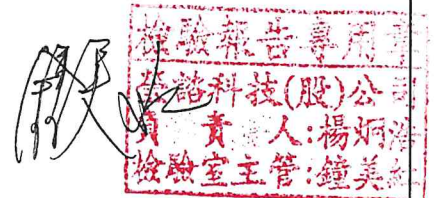 檢驗報告專用章
科技(股)公司
負責人:楊炯
檢驗室主管:鐘美